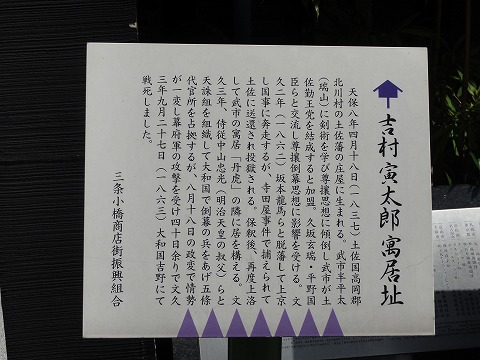 吉村寅太郎 寓居址
天保八年四月十八日(一八三七)土佐国高岡郡
北川村の土佐藩の庄屋に生まれる。武市半平太
(瑞山)に剣術を学び尊攘思想に傾倒し武市が土
佐勤王党を結成すると加盟。久坂玄瑞・平野国
臣らと交流し尊攘倒幕思想に影響を受ける。文
久二年(一八六二)坂本龍馬らと脱藩して上京
し国事に奔走するが、寺田屋事件で捕えられて
土佐に送還され投獄される。保釈後、再度上洛
して武市の寓居「丹虎」の隣に居を構える。文
久三年、侍従中山忠光(明治天皇の叔父)らと
天誅組を組織して大和国で倒幕の兵をあげ五條
代官所を占拠するが、八月十八日の政変で情勢
が一変し幕府軍の攻撃を受け四十日余りで文久
三年九月二十七日(一八六三)大和国吉野にて
戦死しました。
三条小橋商店街振興組合